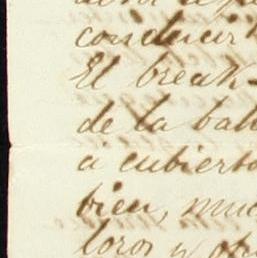 conducir
El break-
de la bah
a cubierto
bien, muc
loros y otr